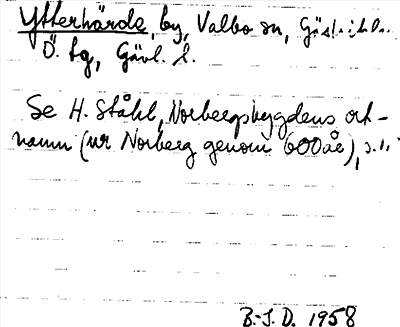 Ytterhärde, by, Valbo sn,
Ö. tg, Gävl. l.
Se H. Ståhl, Norbergsbygdens ort-
namn (ur Norberg genom 600 år),
B.-J. D. 1958